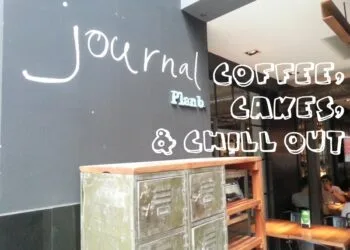 journal
Planb
COFFEE,
CAKES,
& CHILL OUT